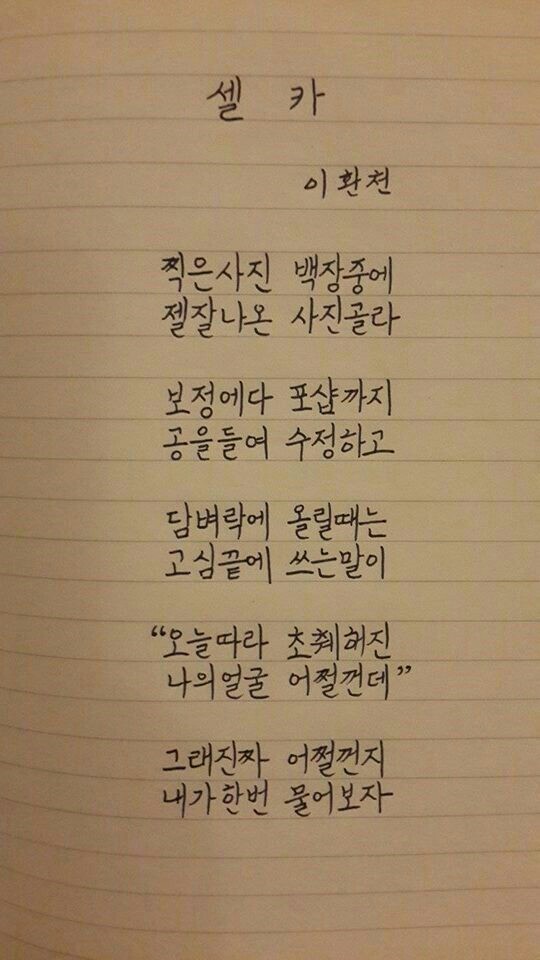 셀 카
이환천
찍은사진 백장중에
젤잘나온 사진골라
보정에다 포샵까지
공을들여 수정하고
담벼락에 올릴때는
고심끝에 쓰는말이
“오늘따라 초췌해진
나의얼굴 어쩔껀데”
그래진짜 어쩔껀지
내가한번 물어보자